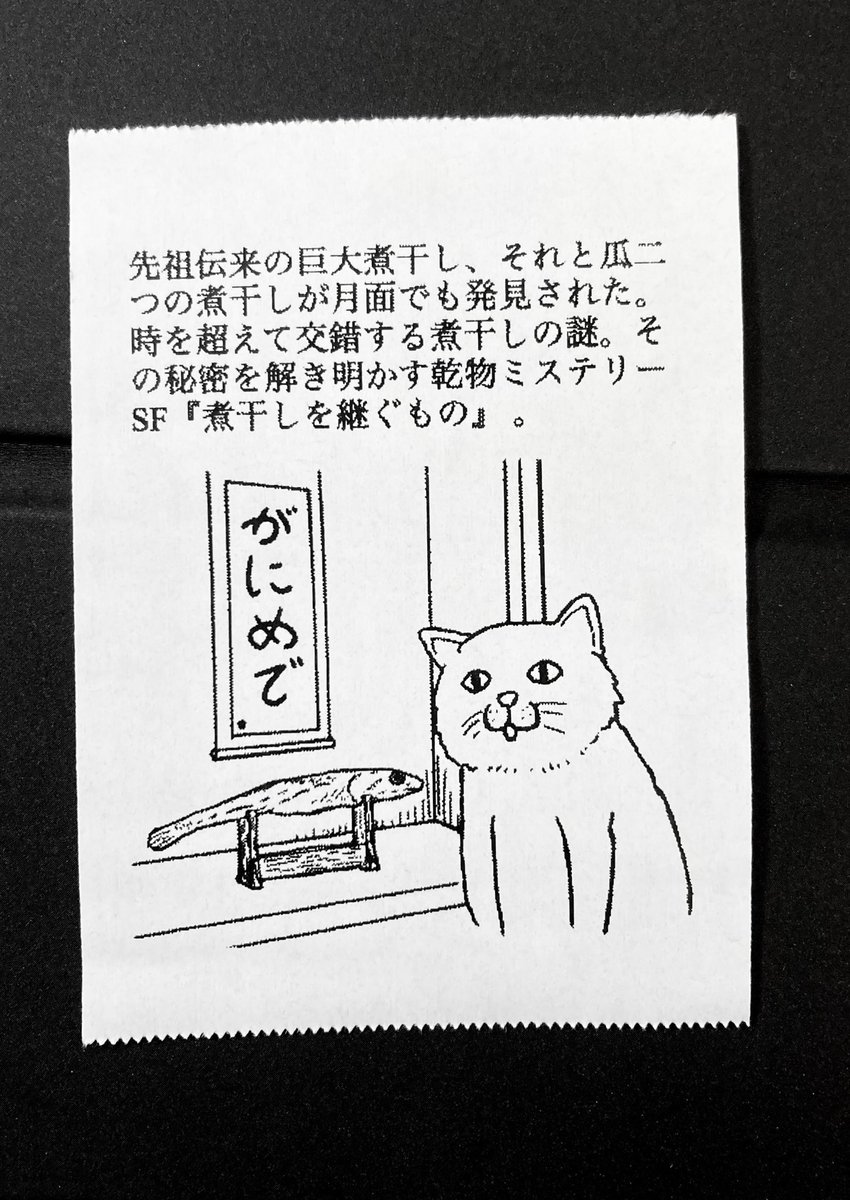 先祖伝来の巨大煮干し、それと瓜二
つの煮干しが月面でも発見された。
時を超えて交錯する煮干しの謎。そ
の秘密を解き明かす乾物ミステリー
SF『煮干しを継ぐもの』。
がにめで